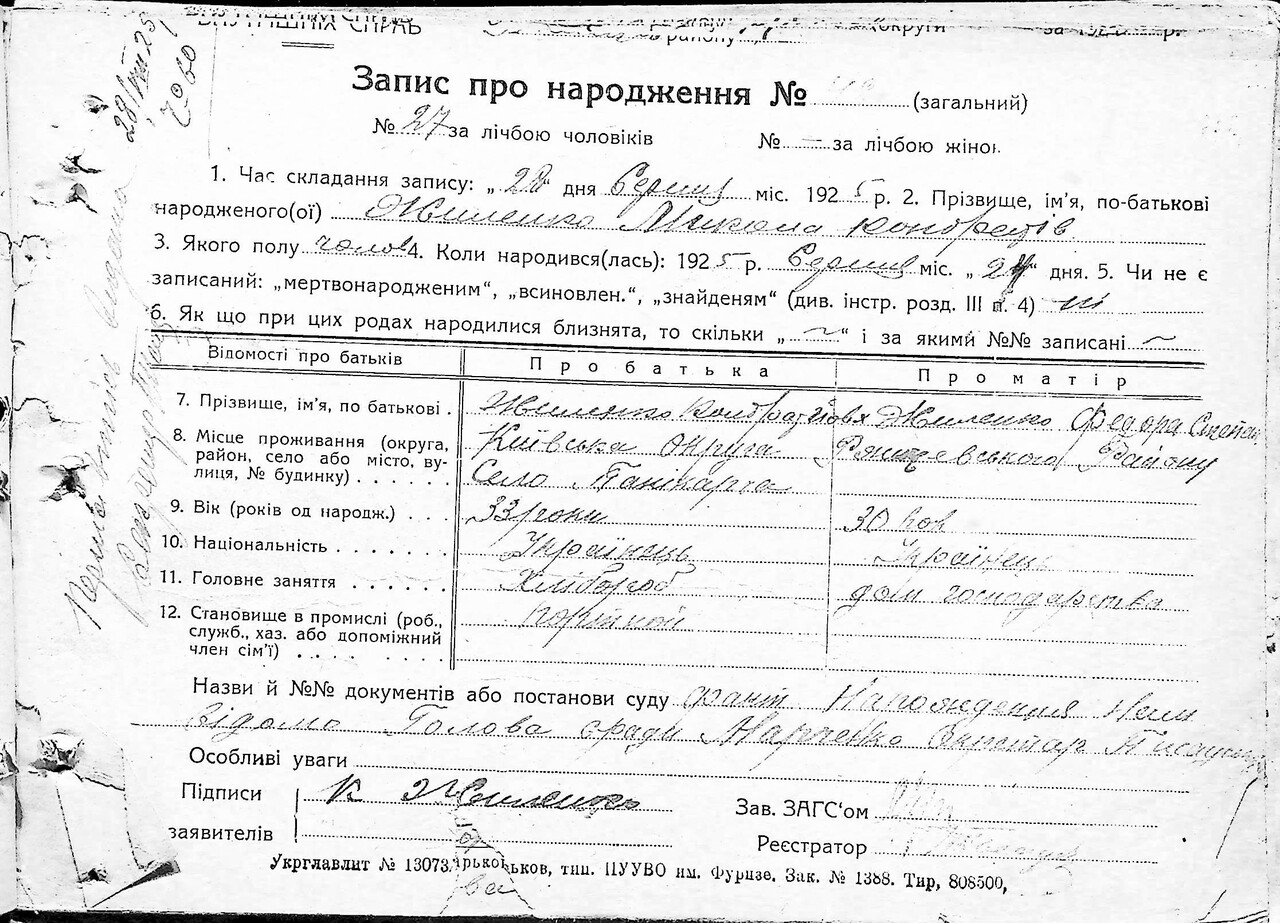 ВНУТРІШНІХ СПРАВ району округи за 192 р.
Запис про народження № (загальний)
№ 27 за лічбою чоловіків № — за лічбою жінок
1. Час складання запису: „28“ дня Серпня міс. 1925 р. 2. Прізвище, ім'я, по-батькові
народженого(ої) Жиленко Микола Кондратів
3. Якого полу чолов 4. Коли народився(лась): 1925 р. Серпня міс. „24“ дня. 5. Чи не є
записаний: „мертвонародженим“, „всиновлен.“, „знайденям“ (див. інстр. розд. III п. 4) ні
6. Як що при цих родах народилися близнята, то скільки „~“ і за якими №№ записані ~
Відомості про батьків Про батька Про матір
7. Прізвище, ім'я, по батькові . Жиленко Кондрат Жиленко Федора Степан
8. Місце проживання (округа, район, село або місто, вулиця, № будинку) . . . . . . Київська округа Району
Село Панікарча
9. Вік (років од народж.) . . . 33 роки 30 рок
10. Національність . . . . . . . Українець Українець
11. Головне заняття . . . . . . Хлібороб дом господарства
12. Становище в промислі (роб., служб., хаз. або допоміжний член сім'ї) . . . . . . . .
Назви й №№ документів або постанови суду факт Нарождения Нам
відомо Голова сради Марченко Секретар
Особливі уваги
Підписи К Жиленко Зав. ЗАГС'ом
заявителів Реєстратор
Укрглавлит № 13073. Харьков, тип. ПУУВО им. Фрунзе. Зак. № 1388. Тир, 808500,